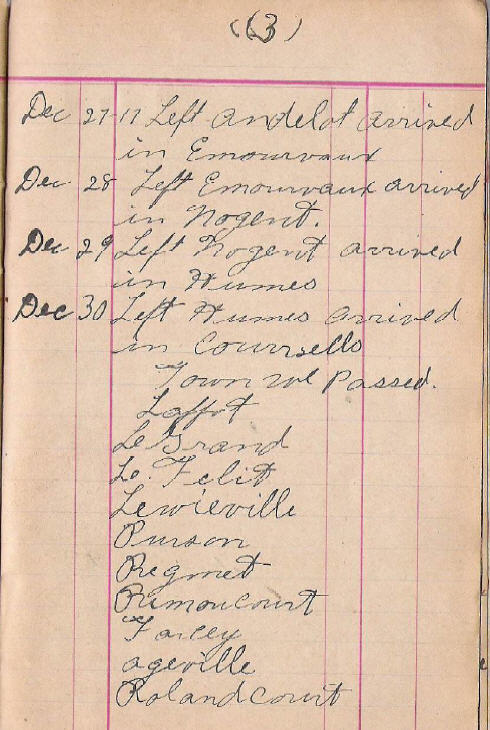 (3)
Dec 27-17 Left andelot arrived
in Emourvaux
Dec 28 Left Emourvaux arrived
in Nogent.
Dec 29 Left Nogent arrived
in Humes
Dec 30 Left Humes arrived
in Courrsells
Town we Passed.
Laffot
Le Grand
Le. Felit
Lewieville
Purson
Regmet
Rimoucourt
Farley
ageville
Rolandcourt